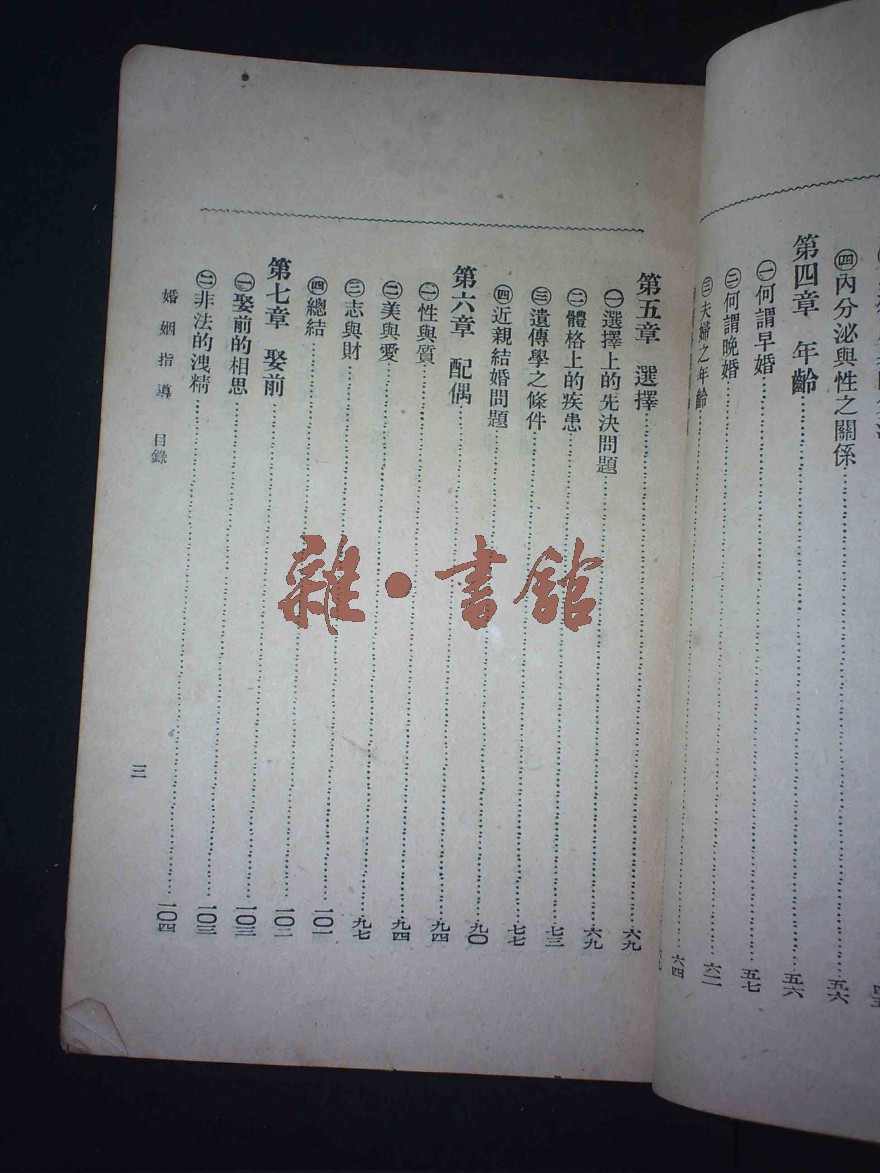 ㊃內分泌與性之關係……五六
第四章 年齡……五六
㊀何謂早婚……五七
㊁何謂晚婚……六二
㊂夫婦之年齡……六四
第五章 選擇……六九
㊀選擇上的先決問題……六九
㊁體格上的疾患……七三
㊂遺傳學之條件……七七
㊃近親結婚問題……九〇
第六章 配偶……九四
㊀性與質……九四
㊁美與愛……九七
㊂志與財……一〇一
㊃總結……一〇二
第七章 娶前……一〇三
㊀娶前的相思……一〇三
㊁非法的洩精……一〇四
婚姻指導 目錄
三
雜·書館